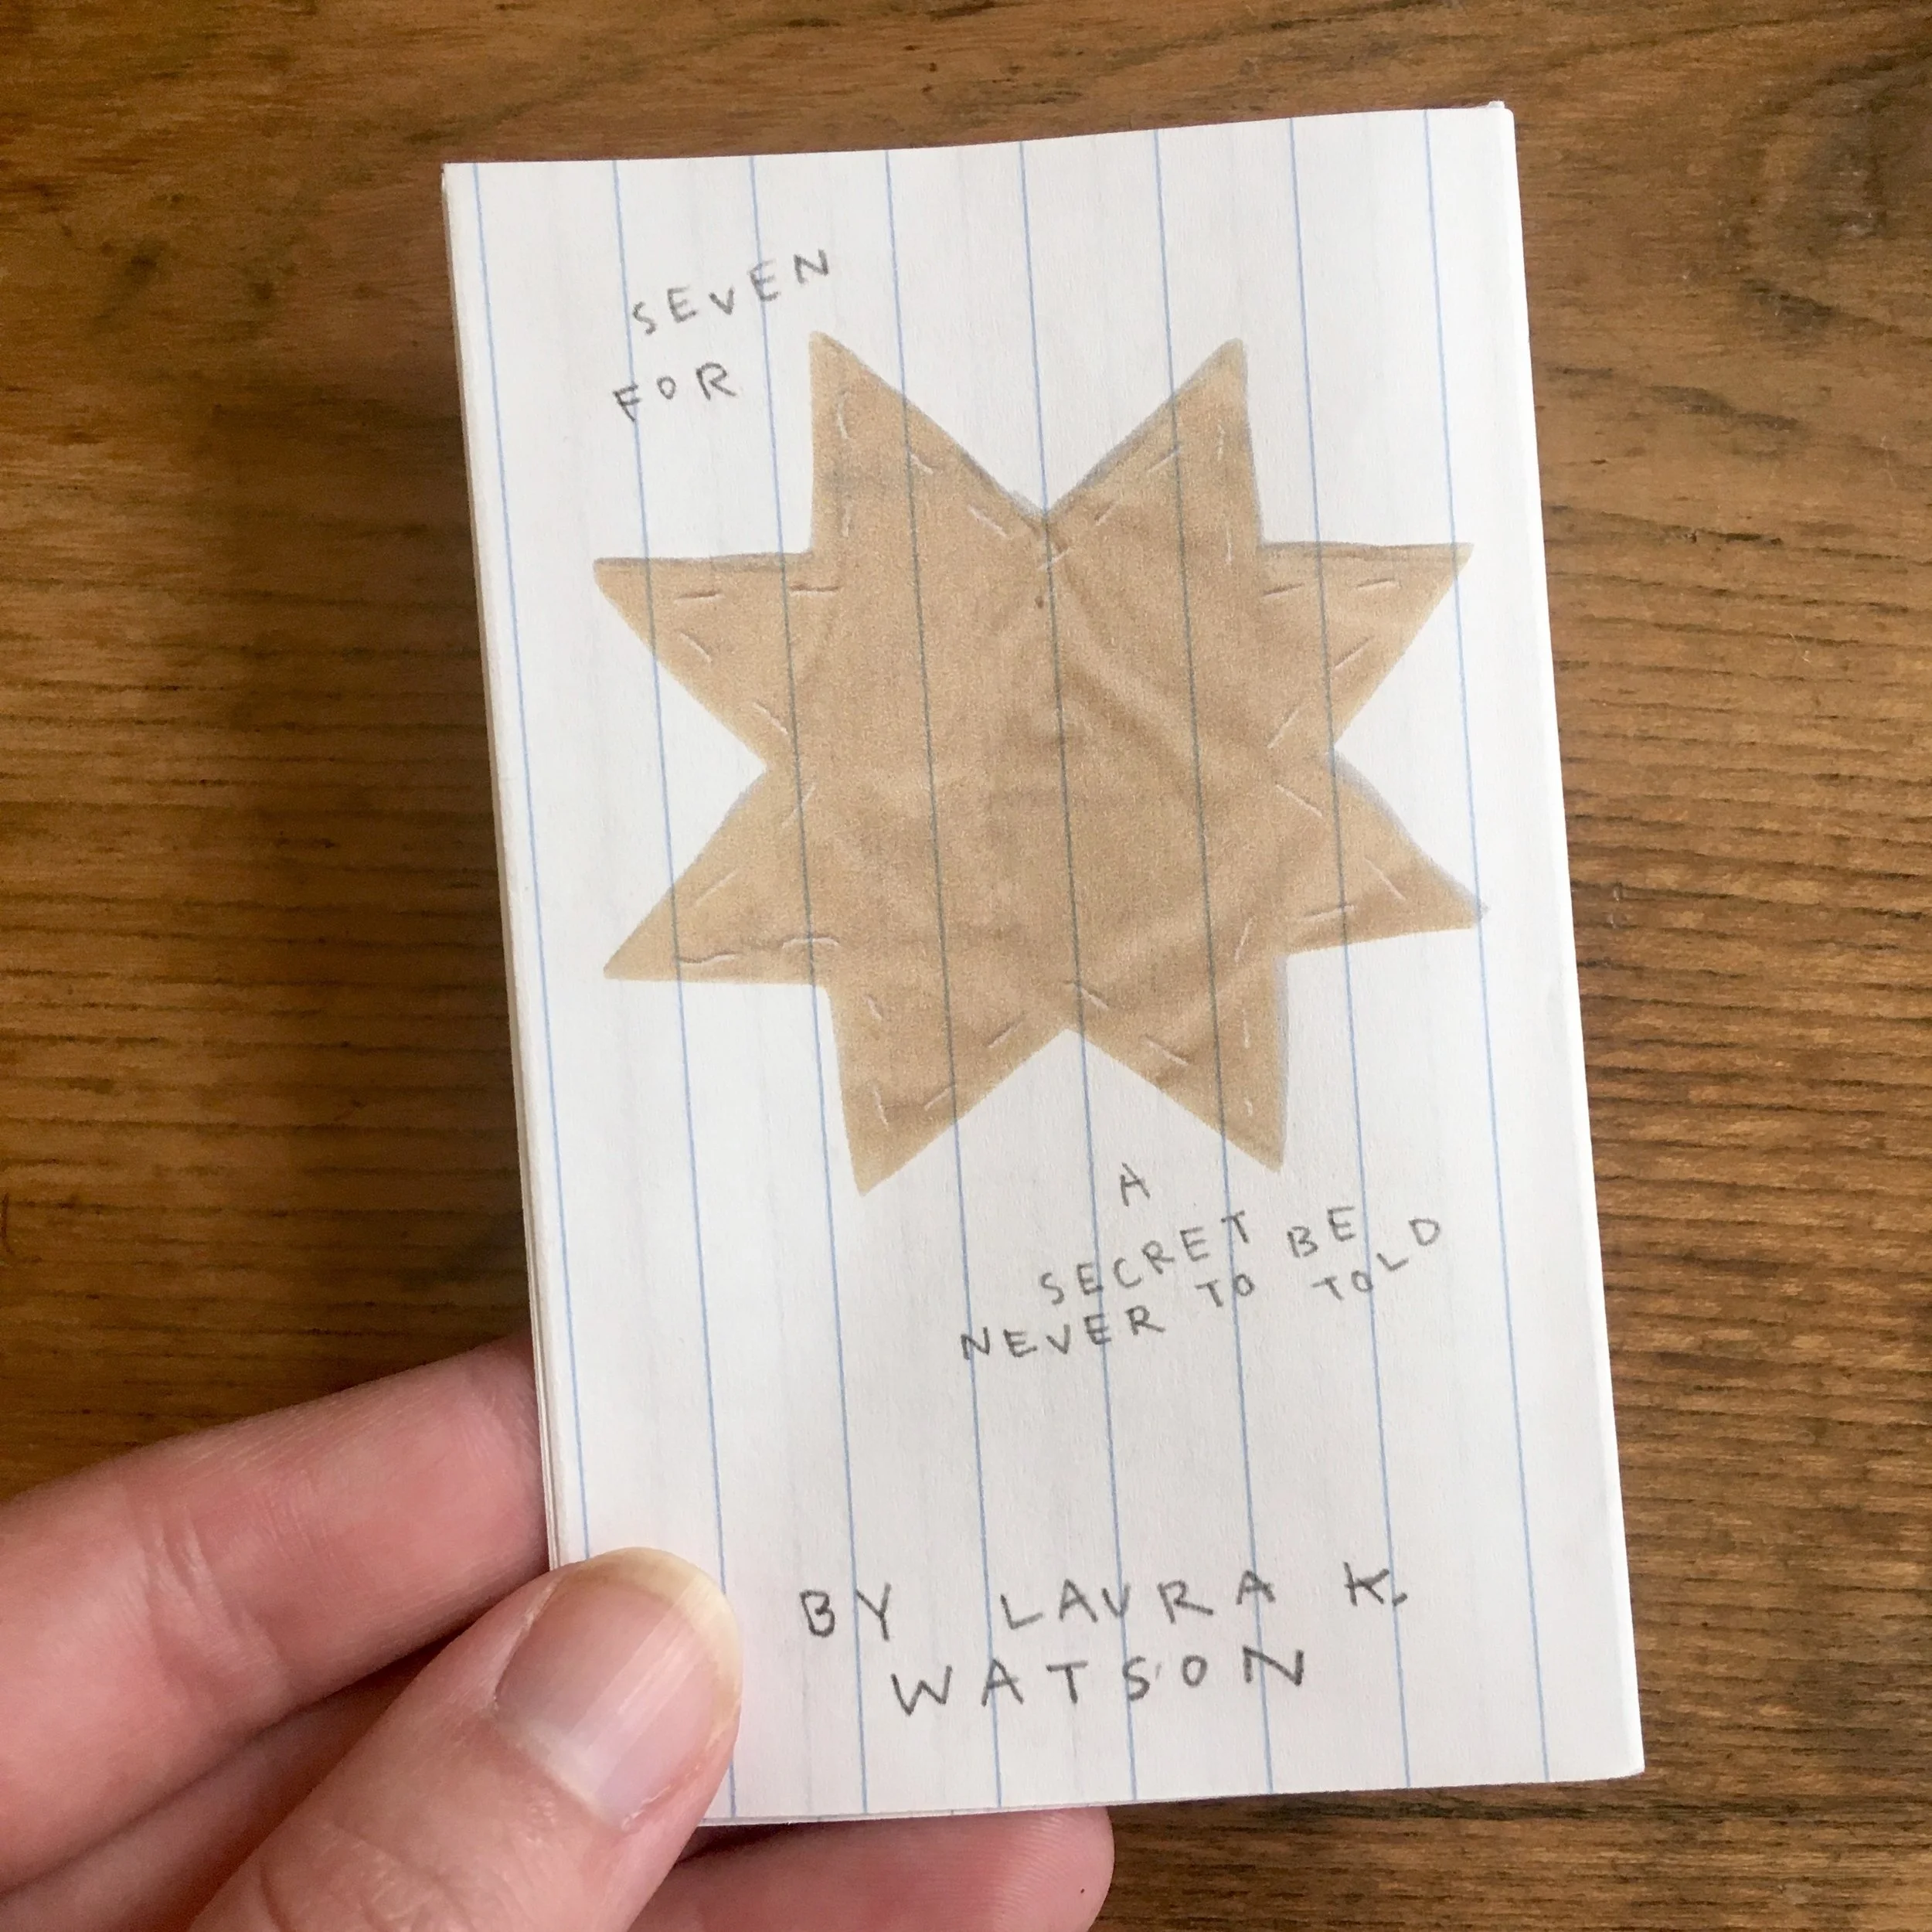 SEVEN
FOR
A
SECRET BE
NEVER TO TOLD
BY LAURA K.
WATSON